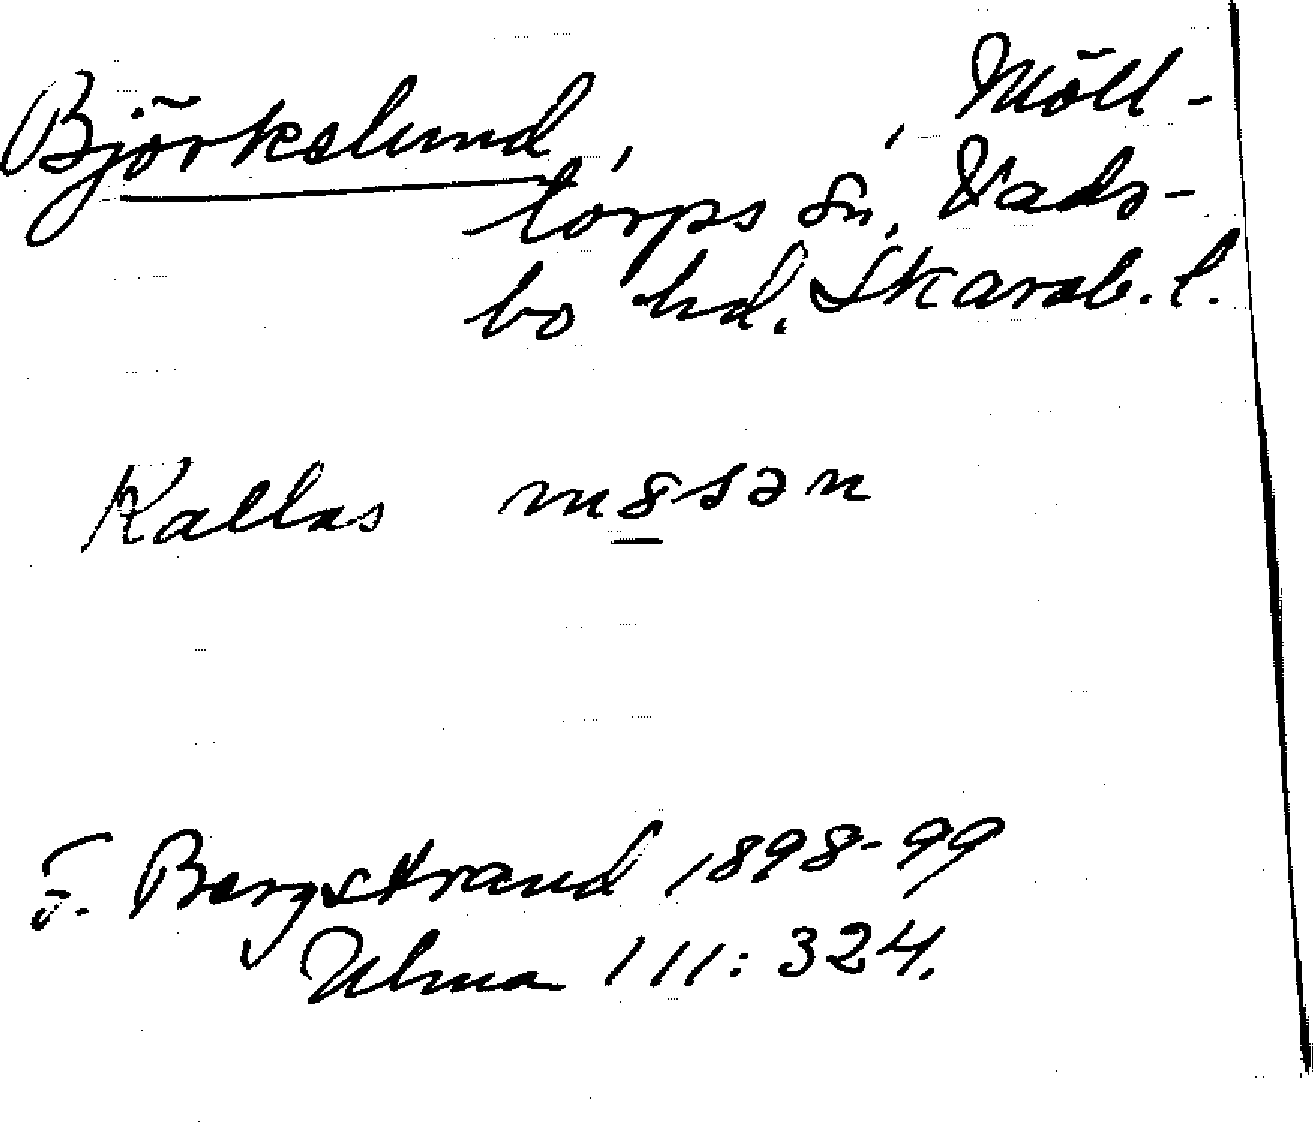 Björkslund, , Möll-
torps sn, Vads-
bo hd. Skarab. l.
Kallas m8sən
F. Bergstrand 1898-99
Ulma 111:324.